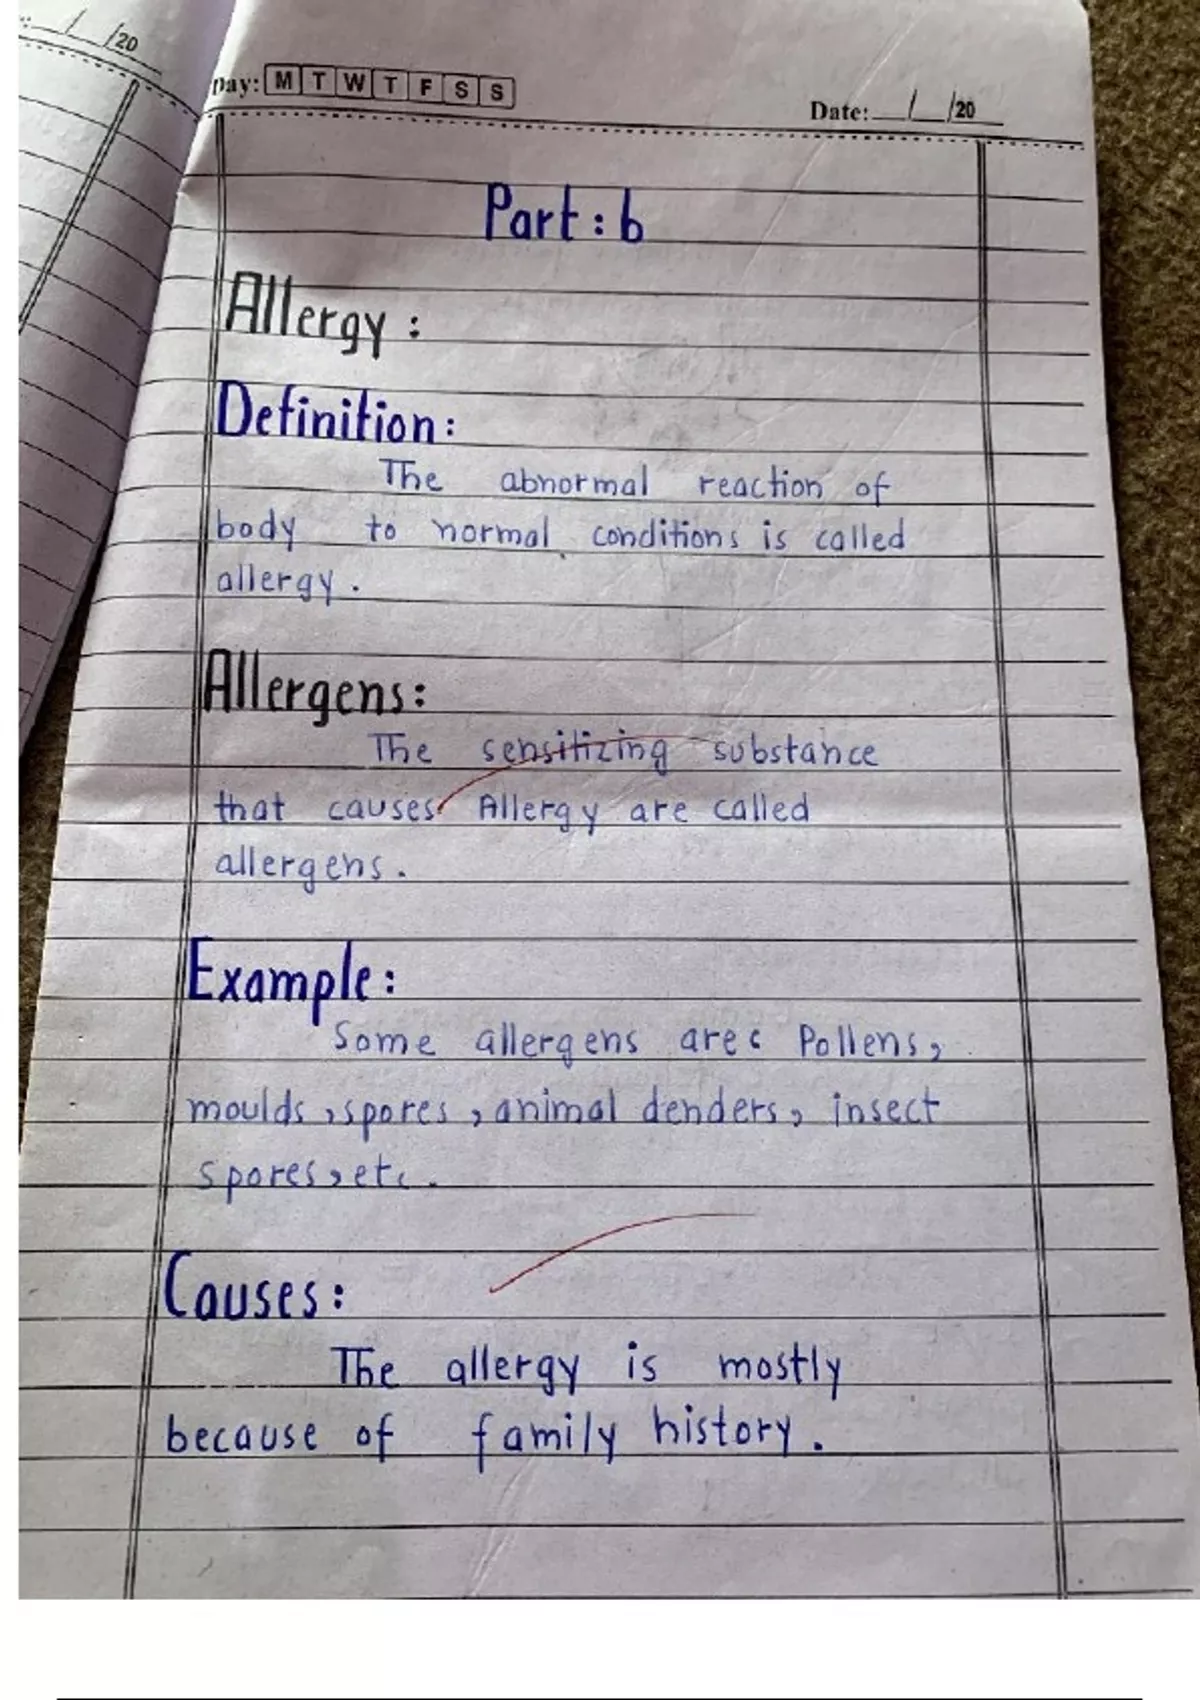 : / /20
Day: M T W T F S S
Date: / /20
Part : b
Allergy :
Definition :
The abnormal reaction of
body to normal conditions is called
allergy .
Allergens :
The sensitizing substance
that causes Allergy are called
allergens .
Example :
Some allergens are : Pollens ,
moulds , spores , animal denders , insect
spores , etc .
Causes :
The allergy is mostly
because of family history .